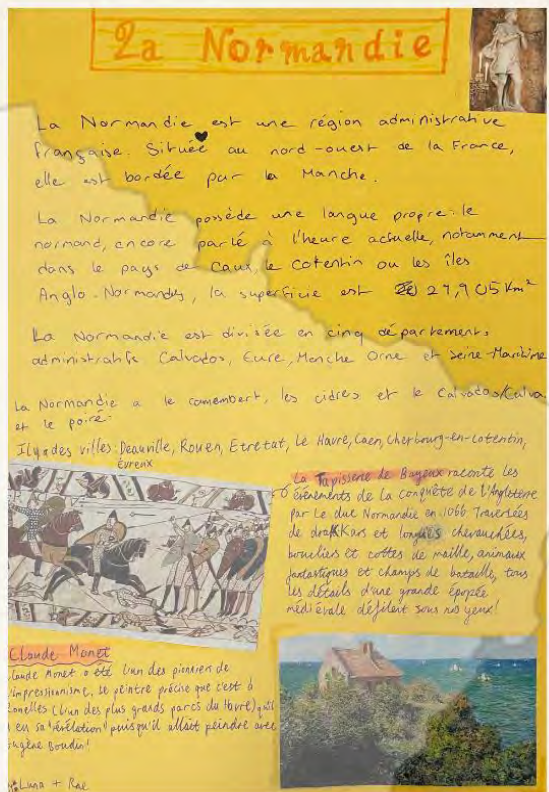 La Normandie
La Normandie est une région administrative
française. Située au nord-ouest de la France,
elle est bordée par la Manche.
La Normandie possède une langue propre: le
normand, encore parlé à l'heure actuelle, notamment
dans le pays de Caux, le Cotentin ou les îles
Anglo-Normandes, la superficie est 29,905 Km²
La Normandie est divisée en cinq départements
administratifs Calvados, Eure, Manche Orne et Seine-Maritime
La Normandie a le camembert, les cidres et le Calvados/Calva
et le poiré.
Il y a des villes: Deauville, Rouen, Etretat, Le Havre, Caen, Cherbourg-en-Cotentin,
Evreux
La Tapisserie de Bayeux raconte les
évènements de la conquête de l'Angleterre
par Le duc Normandie en 1066 Traversées
de draKKars et longues chevauchées,
boucliers et cottes de maille, animaux
fantastiques et champs de bataille, tous
les détails d'une grande épopée
médiévale défilent sous nos yeux!
Claude Monet
Claude Monet a été l'un des pionniers de
l'impressionisme. Le peintre précise que c'est à
(l'un des plus grands parcs du Havre) qu'il
a eu sa "révélation" puisqu'il allait peindre avec
Eugène Boudin!
Luna + Rae